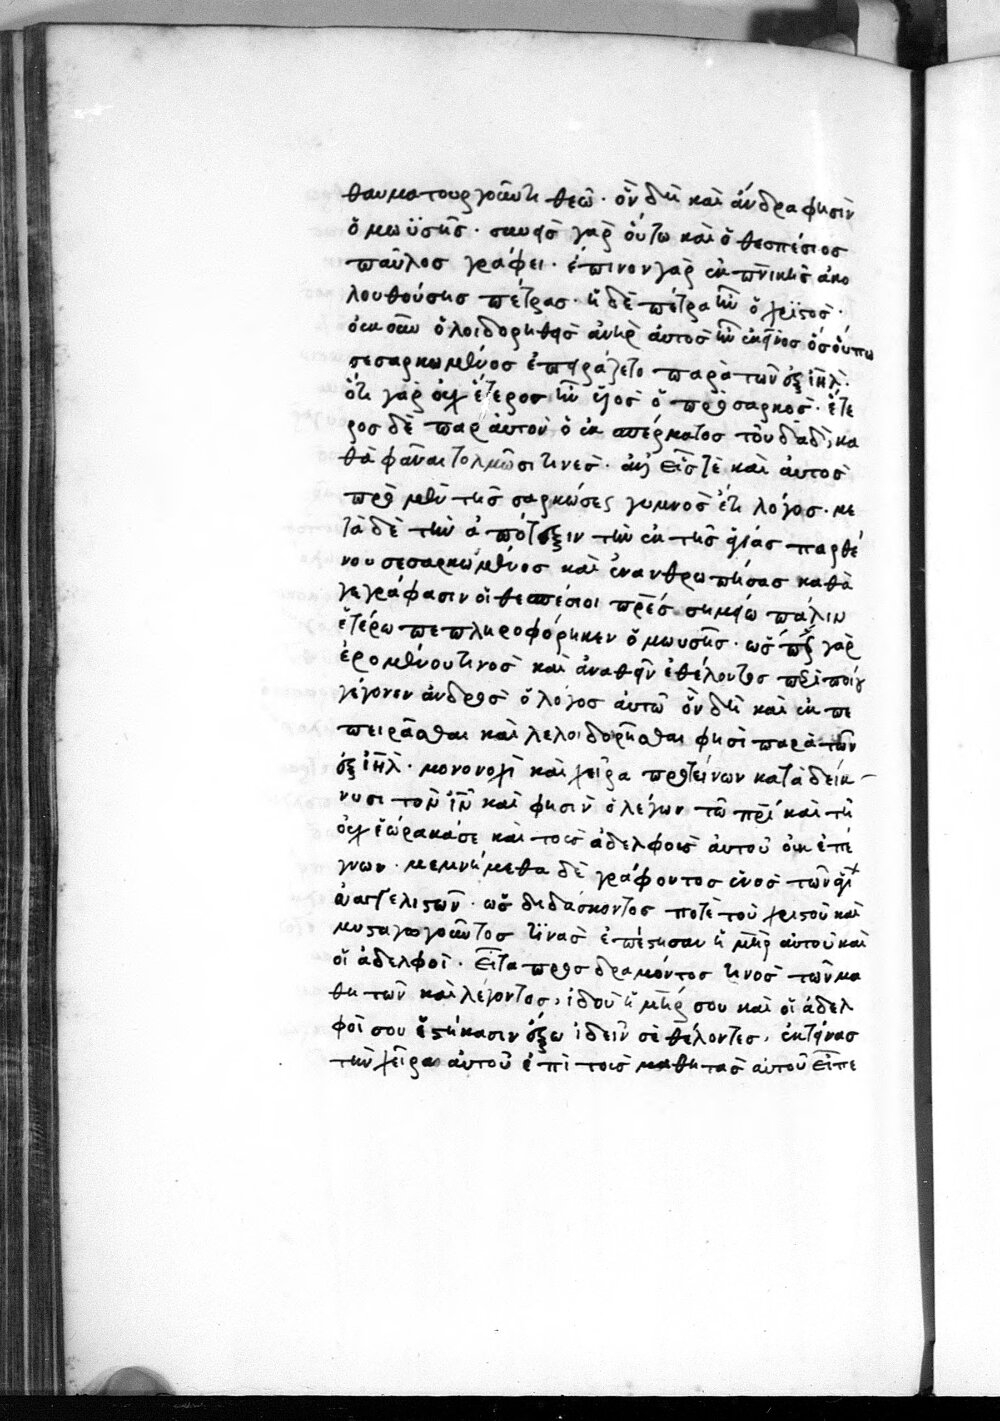 θαυματουργοῦντι θεῶ · ὃν δὴ καὶ ἄνδρα φησὶν
ὁ μωϋσῆς · σαφῶς γὰρ οὕτω καὶ ὁ θεσπέσιος
παῦλος γράφει · ἔπινον γὰρ ἐκ πνικῆς ἀκο
λουθούσης πέτρας · ἡ δὲ πέτρα ἦν ὁ χριϛὸς ·
οὐκοῦν ὁ λοιδορηθεὶς ἀνὴρ αὐτὸς ἦν ἐκεῖνος ὃς οὔπω
σεσαρκωμένος ἐπηράζετο παρὰ τῶν ἐξ ιηλ ·
ὅτι γὰρ οὐχ ἕτερος ἦν υἱὸς ὁ πρὸ σαρκὸς · ἕτε
ρος δὲ παρ' αὐτὸν ὁ ἐκ σπέρματος τοῦ δαδ, κα
θὰ φᾶναι τολμῶσι τινες · ἀλλ' εἷς τὲ καὶ αὐτὸς
πρὸ μὲν τῆς σαρκώσεως γυμνὸς ἔτι λόγος · με
τὰ δὲ τὴν ἀπότεξιν τὴν ἐκ τῆς ἁγίας παρθέ
νου σεσαρκωμένος καὶ ἐνανθρωπήσας καθὰ
γεγράφασιν οἱ θεσπέσιοι πρες σημείω πάλιν
ἑτέρω πεπληροφόρηκεν ὁ μωυσῆς · ὡς γὰρ
ἐρομένου τινος καὶ ἀναθεῖν ἐθέλοντος περὶ ποίου
γέγονεν ἀνδρὸς ὁ λόγος αὐτῶ ὃν δὴ καὶ ἐκπε
πειρᾶσθαι καὶ λελοιδορῆσθαι φησὶ παρὰ τῶν
ἐξ ιηλ · μονονουχὶ καὶ χεῖρα προτείνων καταδείκ
νυσι τὸν ιν καὶ φησὶν ὁ λέγων τῶ πρι καὶ τῆ
οὐχ ἑώρακά σε καὶ τοῖς ἀδελφοῖς αὐτοῦ οὐκ ἐπέ
γνων · μεμνήμεθα δὲ γράφοντος ἑνὸς τῶν ἁγι
εὐαγγελιϛῶν · ὡς διδάσκοντος ποτὲ τοῦ χριϛοῦ καὶ
μυϛαγωγοῦντος τινὰς ἐπέϛησαν ἡ μηρ αὐτοῦ καὶ
οἱ ἀδελφοὶ · εἶτα προσδραμόντος τινὸς τῶν μα
θητῶν καὶ λέγοντος, ἰδοὺ ἡ μηρ σου καὶ οἱ ἀδελ
φοί σου ἑϛήκασιν ἔξω ἰδεῖν σὲ θέλοντες, ἐκτείνας
τὴν χεῖρα αὐτοῦ ἐπὶ τοὺς μαθητὰς αὐτοῦ εἶπε